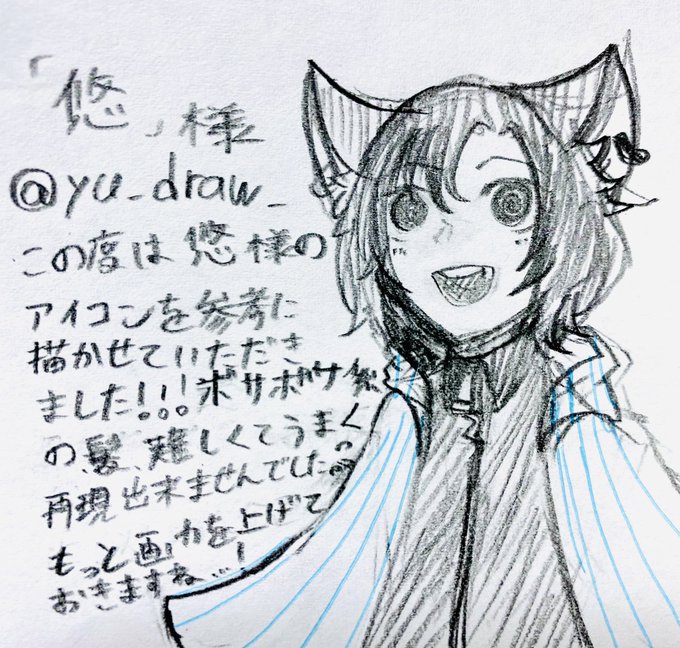 「悠」様
@yu_draw_
この度は悠様の
アイコンを参考に
描かせていただき
ました!!!ボサボサ系
の髪、難しくてうまく
再現出来ませんでした。
もっと画力を上げて
おきますね…!